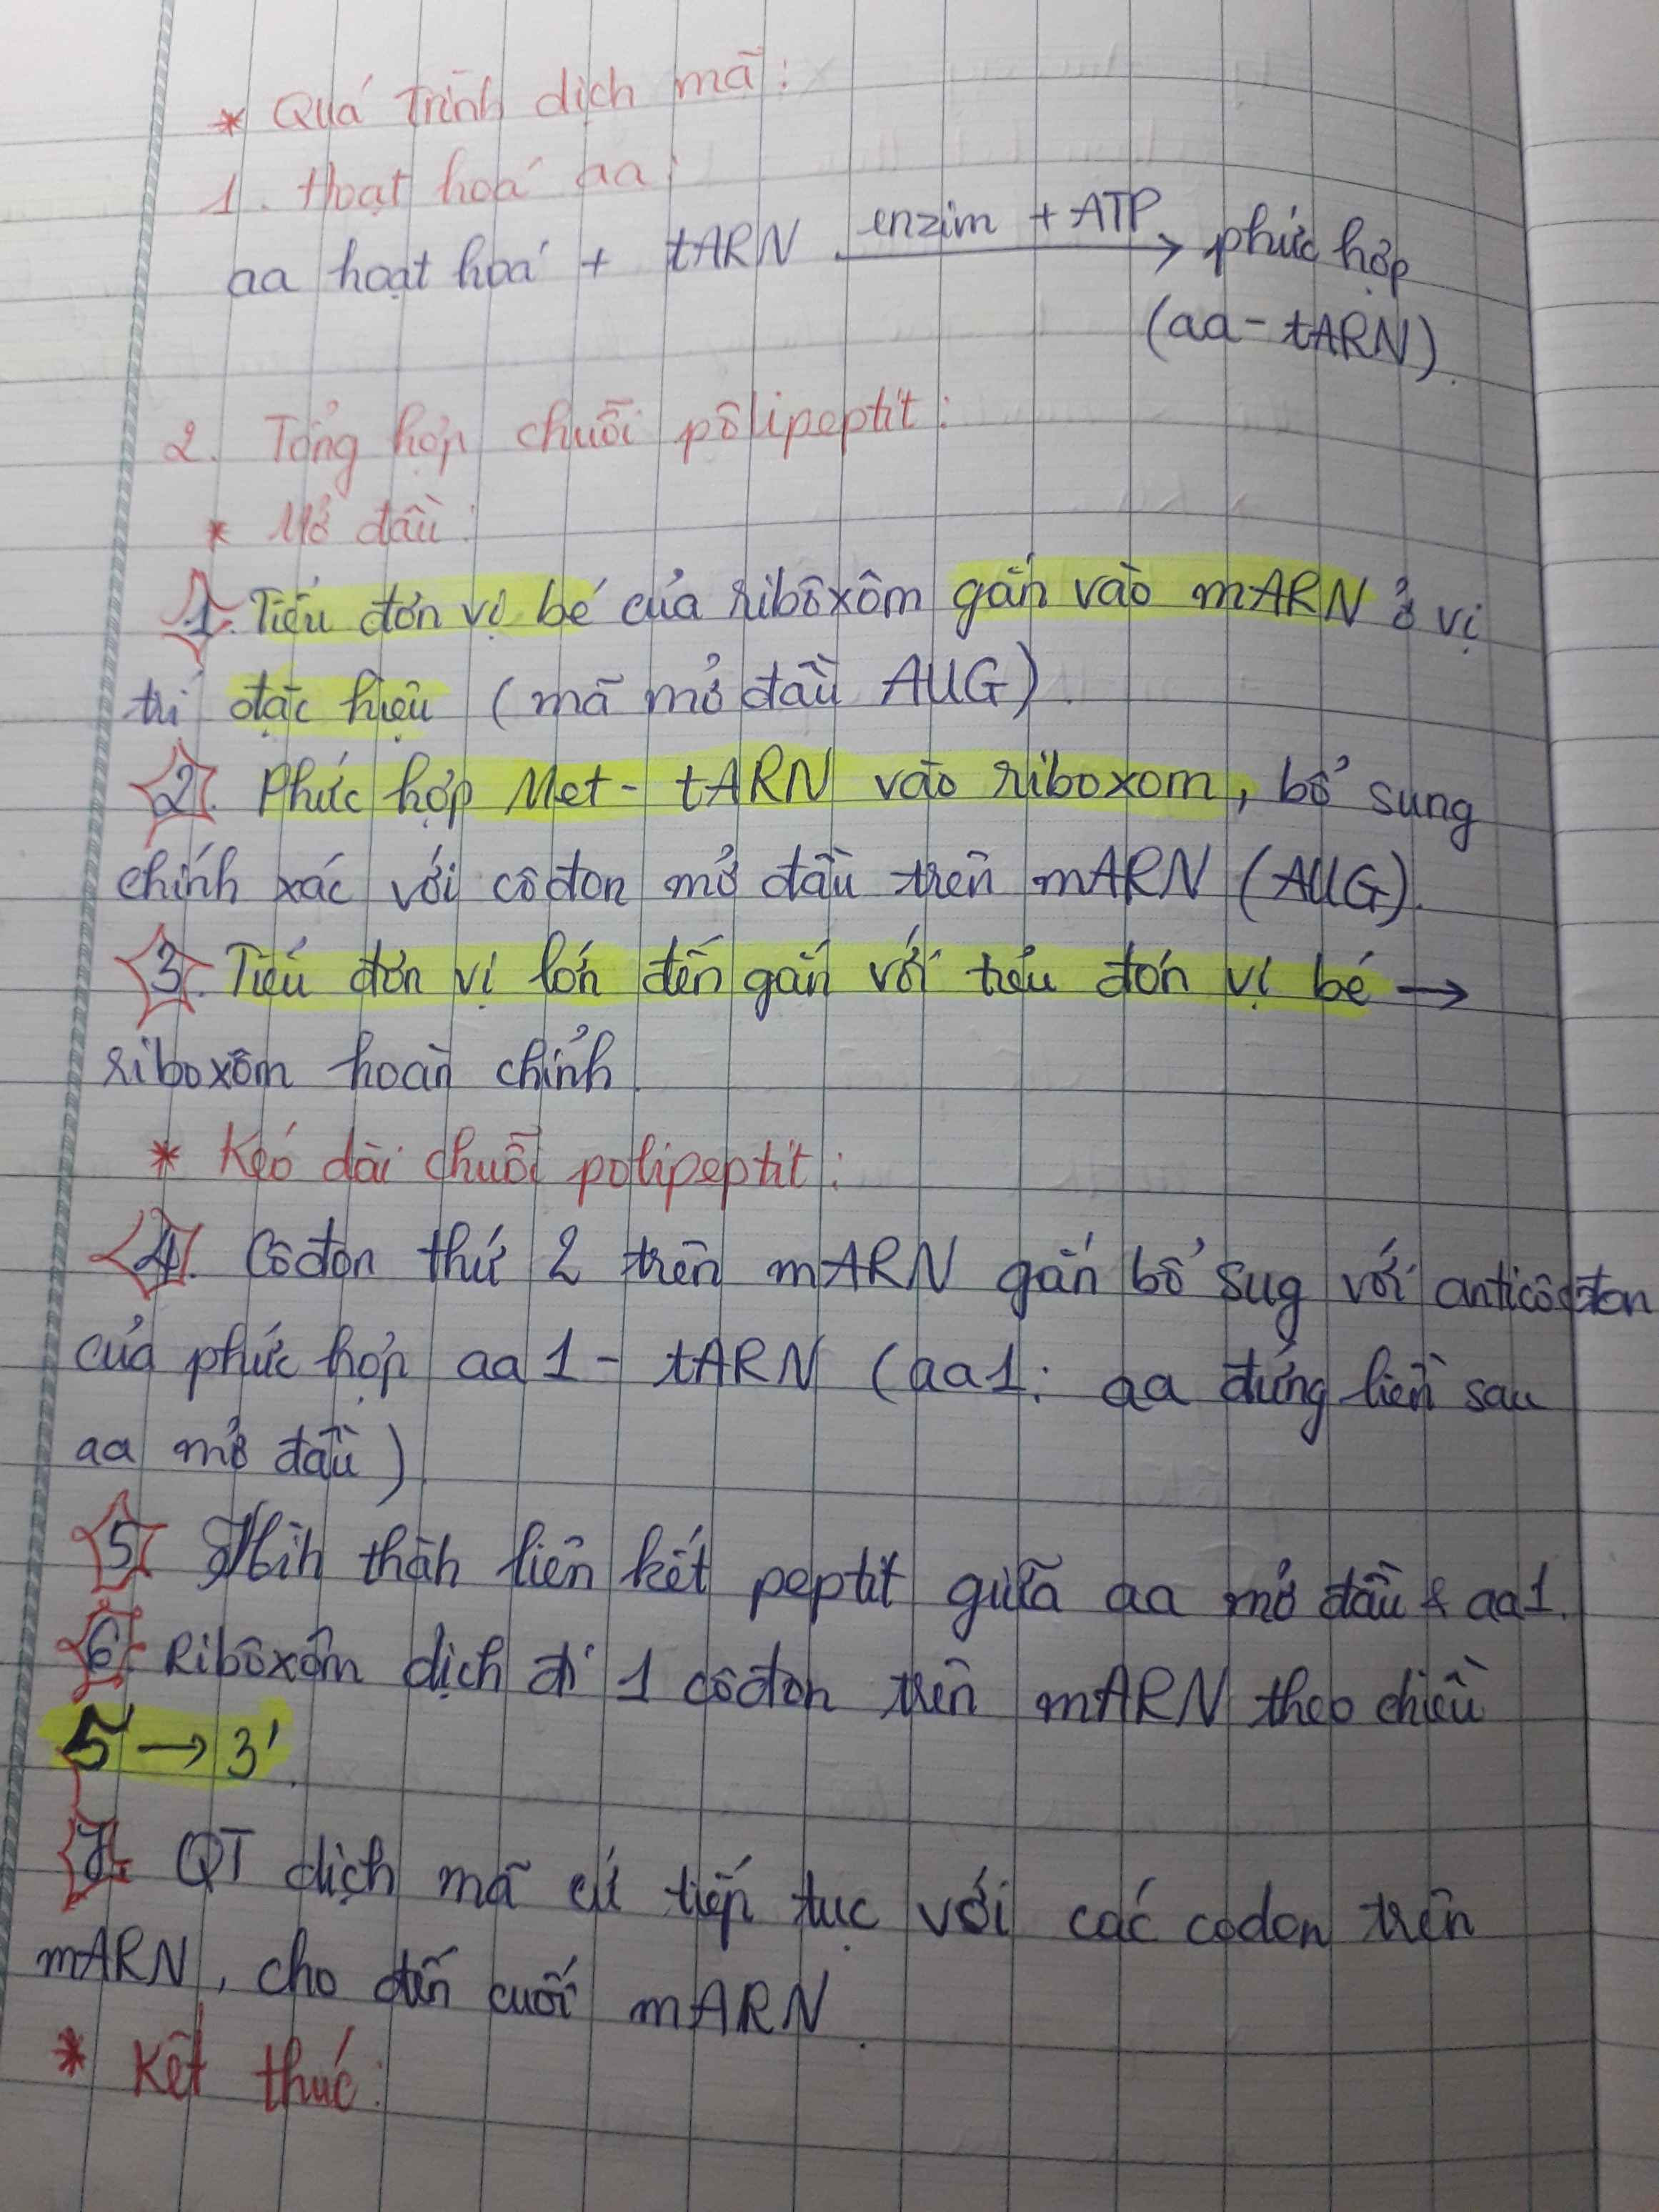 * Quá trình dịch mã:
1. Hoạt hoá aa:
aa hoạt hoá + tARN enzim + ATP → phức hợp
(aa - tARN).
2. Tổng hợp chuỗi pôlipeptit:
* Mở đầu:
1. Tiểu đơn vị bé của ribôxôm gắn vào mARN ở vị
trí đặc hiệu (mã mở đầu AUG).
2. Phức hợp Met - tARN vào riboxom, bổ sung
chính xác với côđon mở đầu trên mARN (AUG).
3. Tiểu đơn vị lớn đến gắn với tiểu đơn vị bé →
riboxôm hoàn chỉnh.
* Kéo dài chuỗi polipeptit:
4. Côđon thứ 2 trên mARN gắn bổ sug với anticôđon
của phức hợp aa1 - tARN (aa1: aa đứng liền sau
aa mở đầu).
5. Hìh thàh liên kết peptit giữa aa mở đầu & aa1.
6. Ribôxôm dịch đi 1 côđon trên mARN theo chiều
5' → 3'.
7. QT dịch mã cứ tiếp tục với các codon trên
mARN, cho đến cuối mARN.
* Kết thúc: